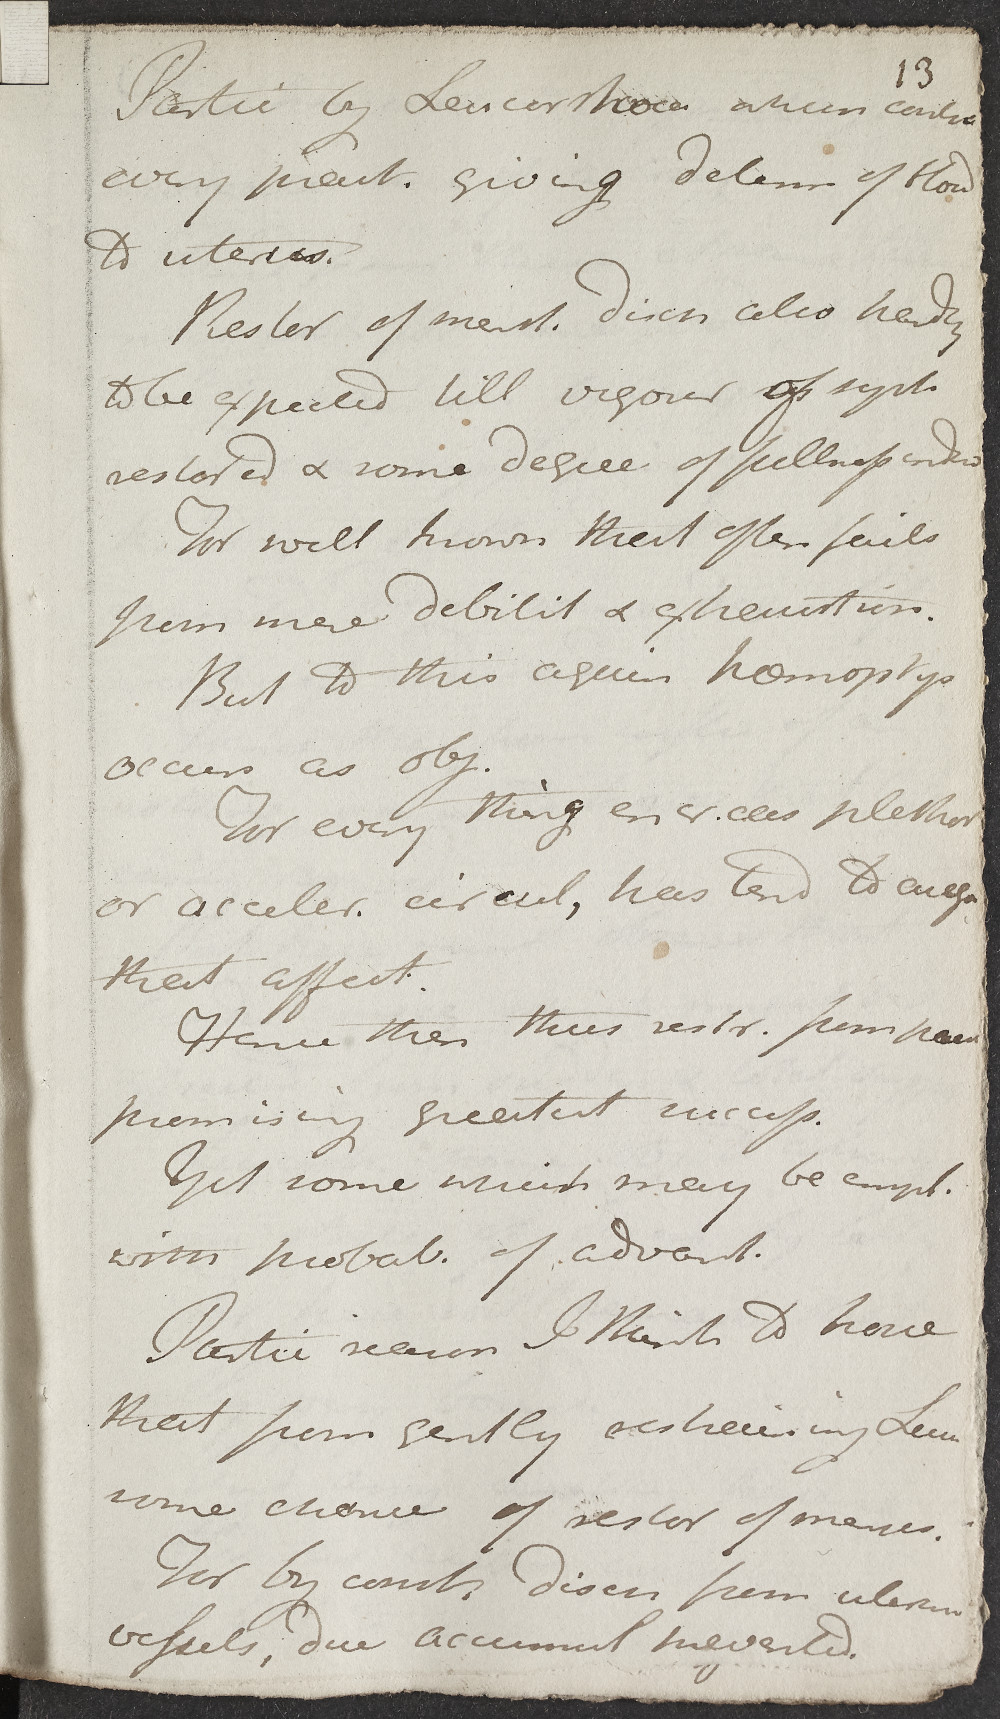 13
Partic by Leucorrhoea whien
every preut. giving determ of blood
to uterus.
Restor of menst. disch also hardly
to be expected till vigour of syst
restored & some degree of fullness
For well known that often fails
from mere debilit & exhaustion.
But to this again hœmoptys
occurs as obj.
For every thing encreas plethor
or acceler. circul, has tend to augm
that affect.
Hence then thus restr. from
promising greatest success.
Yet some which may be empl.
with probab. of advant.
Partic reason I think to have
that from gently restraining Leuc
some chance of restor of menses.
For by const disch from uterin
vessels, due accumul prevented.